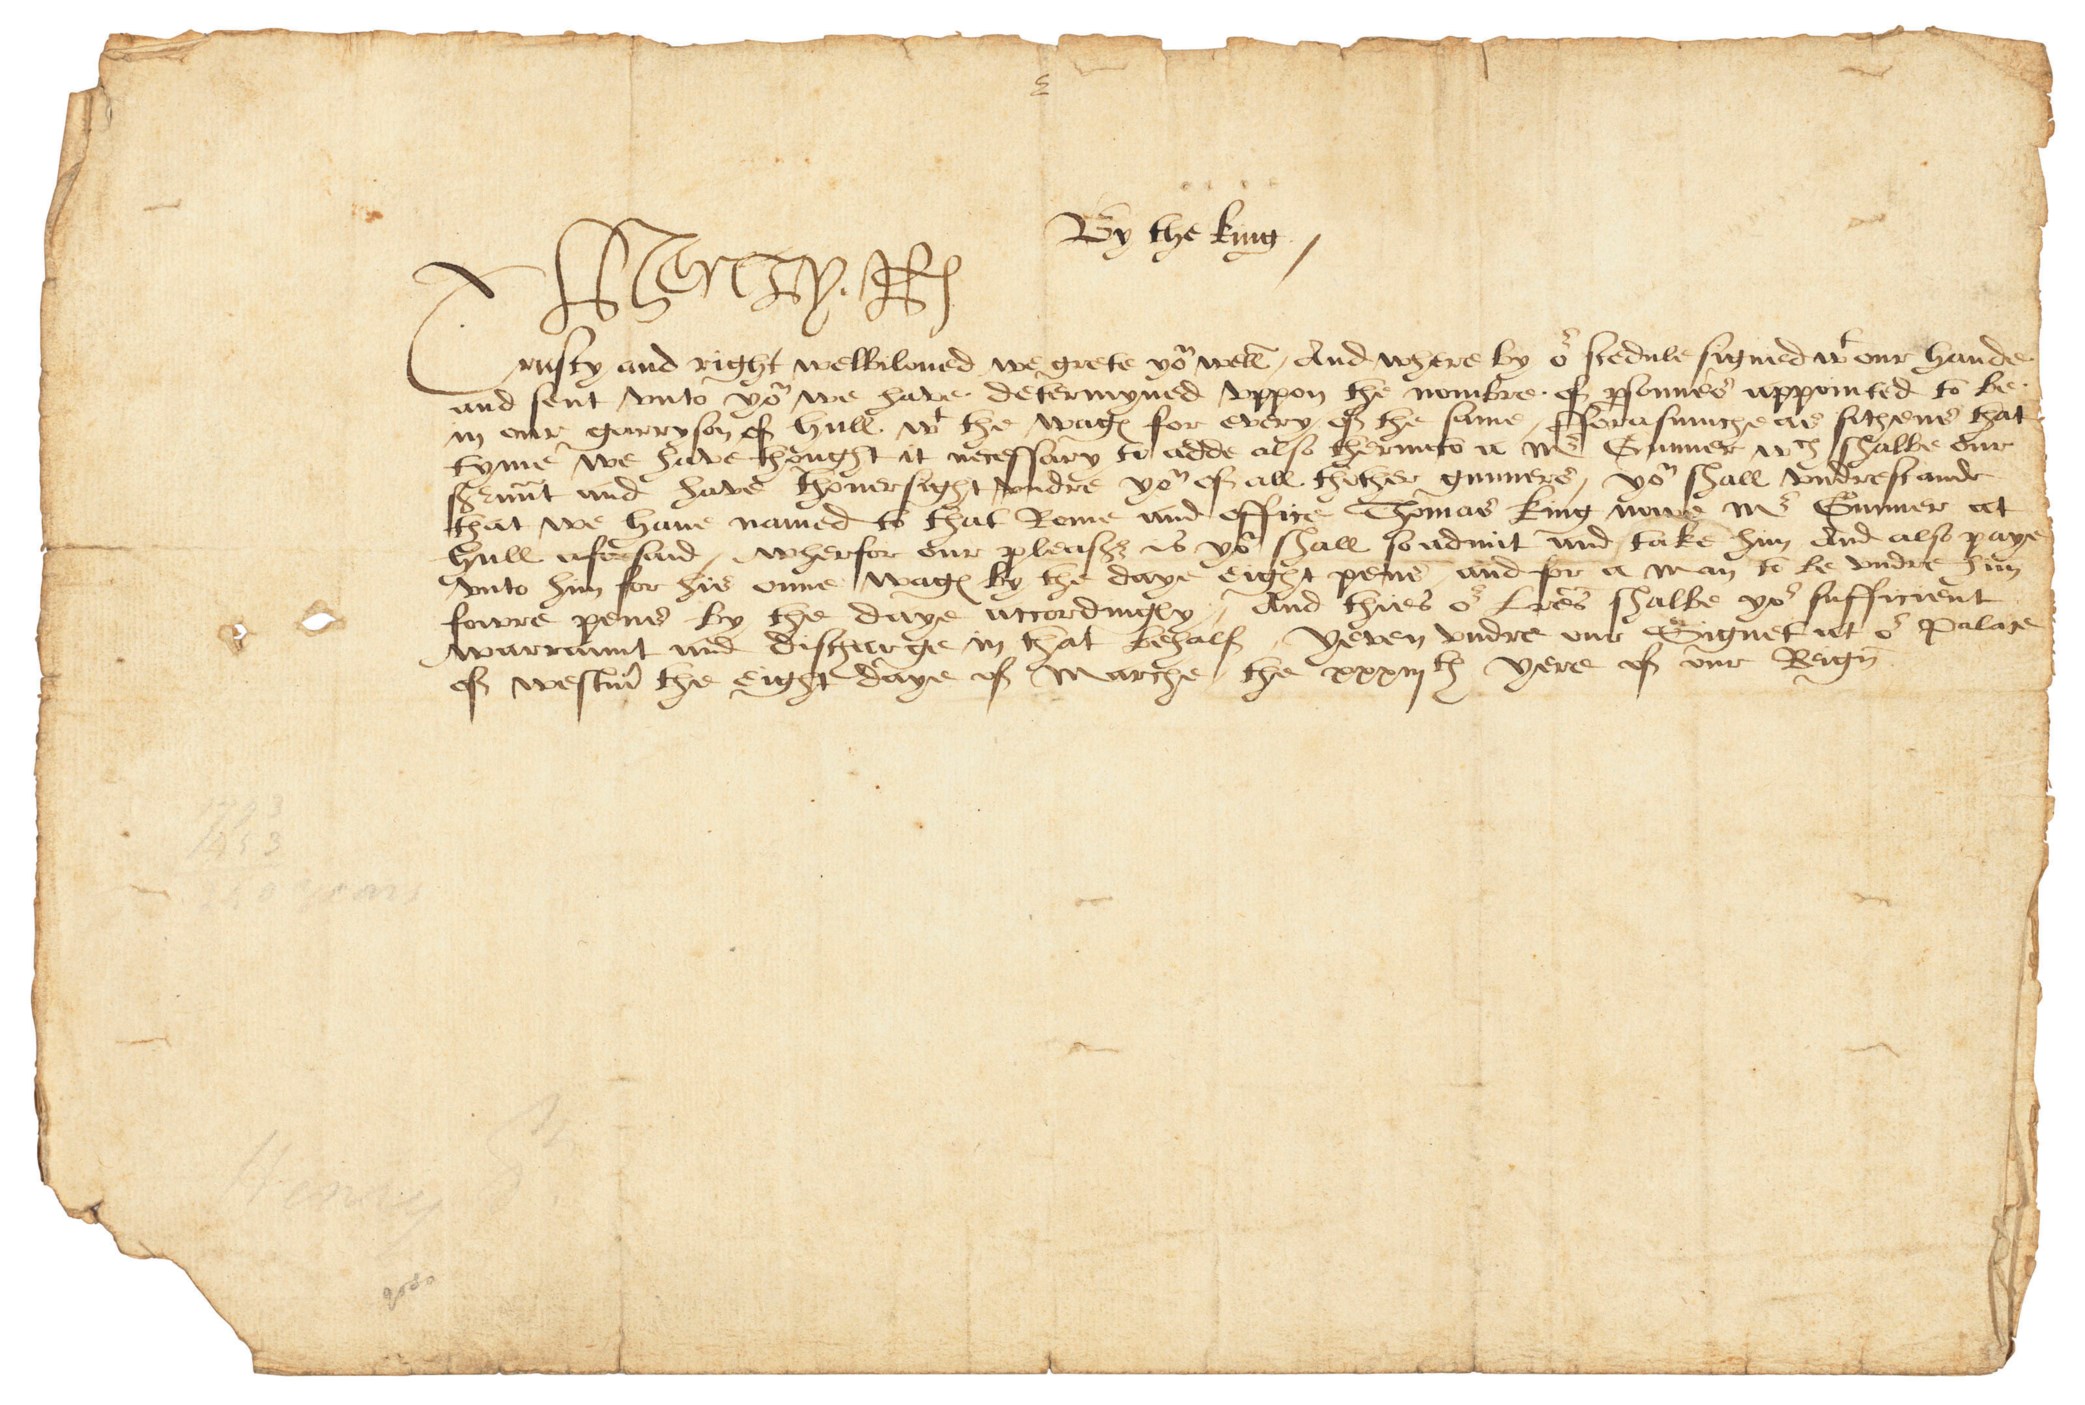 By the king
Henry R
Trusty and right welbiloued we grete yoᵘ well / And where by oʳ scedule signed wᵗ our hande
and sent vnto yoᵘ we have determyned vppon the nombre of psonnes appointed to be
in our garryson of Hull wᵗ the wages for every of the same / fforasmuche as sithens that
tyme we have thought it necessary to adde also thervnto a Mʳ Gunner wᶜʰ shalbe our
sʳuñt and have thouersight vndre yoᵘ of all thother gunners / yoᵘ shall vndrestande
that we haue named to that Rome and office Thomas King nowe Mʳ Gunner at
Hull aforesaid / wherfor our pleasʳ is yoᵘ shall so admit and take him And also paye
vnto him for his owne wages by the daye eight pens and for a man to be vndre him
fowre pens by the daye accordingly / And thies oʳ lres shalbe yoʳ sufficient
warraunt and discharge in that behalf / Yeven vndre our Signet at oʳ Palace
of Westm the eight daye of Marche the xxxiijth yere of our Reign
1793
1543
250 years
Henry 8